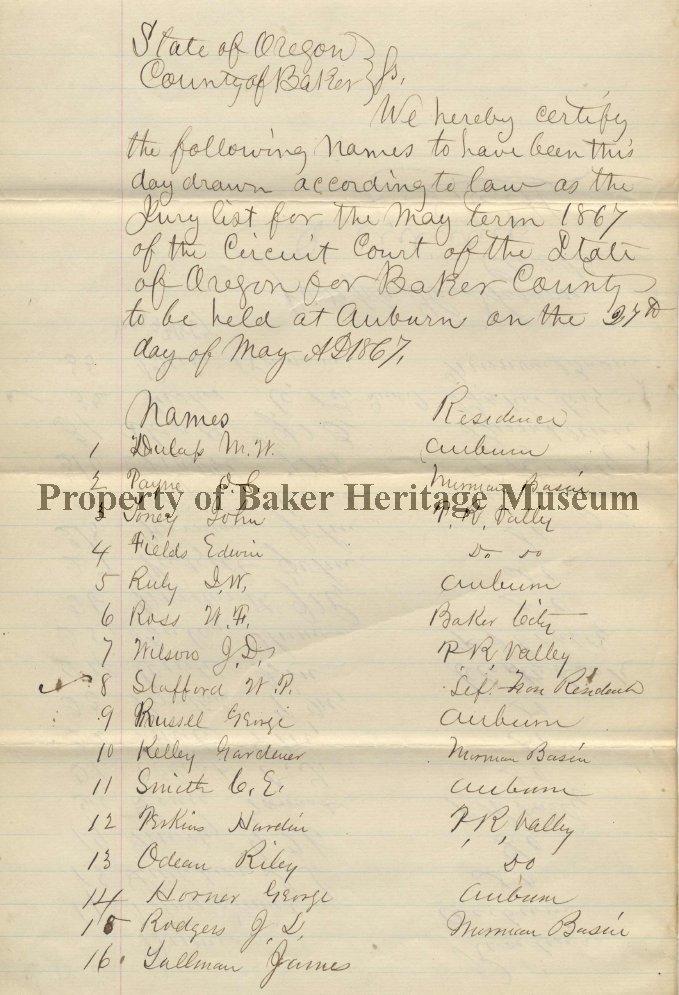 State of Oregon
County of Baker } Ss.
We hereby certify
the following names to have been this
day drawn according to law as the
Jury list for the May term 1867
of the Circuit Court of the State
of Oregon for Baker County
to be held at Auburn on the 27th
day of May AD 1867.
Names Residence
1 Dunlap M. W. Auburn
2 Payne Mormon Basin
Property of Baker Heritage Museum
3 Toney John P. R. Valley
4 Fields Edwin Do do
5 Ruby I. W. Auburn
6 Ross W. F. Baker City
7 Wilson J. D. P. R. Valley
8 Stafford W. P. Left Non Resident
9 Russell George Auburn
10 Kelley Gardener Mormon Basin
11 Smith C. E. Auburn
12 Perkins Hardin P. R. Valley
13 Odean Riley Do
14 Horner George Auburn
15 Rodgers J. D. Mormon Basin
16 Tallman James